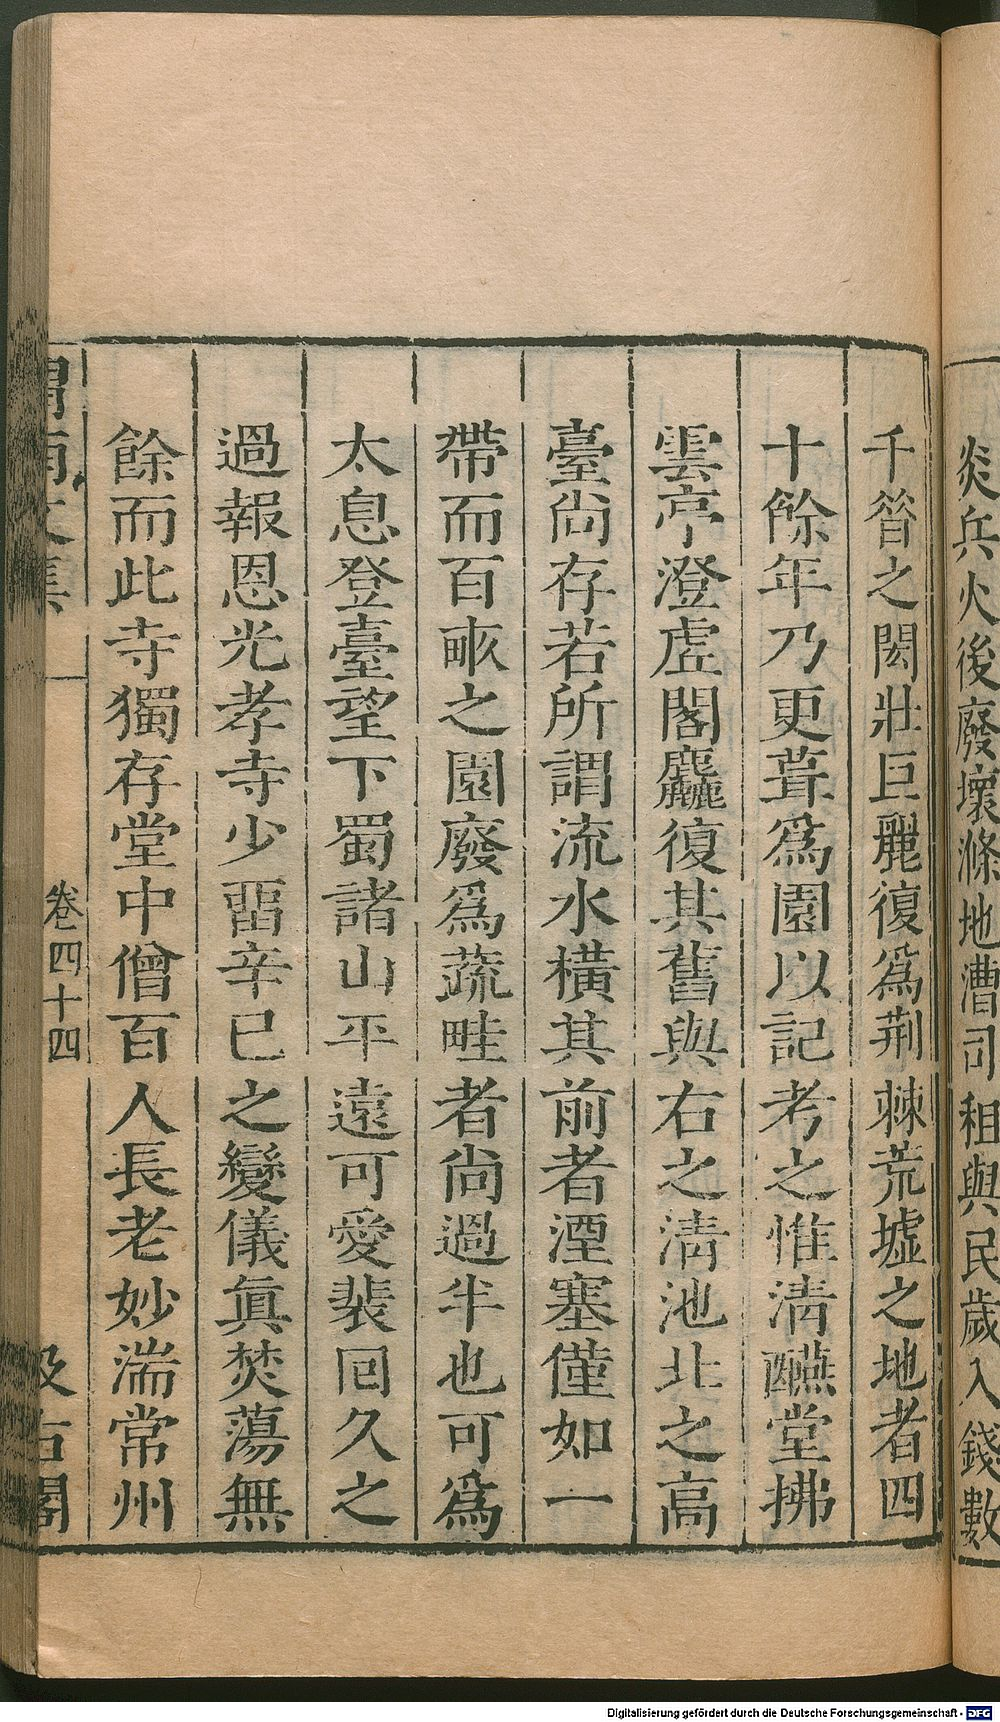 炎兵火後廢壞滌地漕司租與民歲入錢數
千昝之閎壯巨麗復爲荆棘荒墟之地者四
十餘年乃更葺爲園以記考之惟淸醼堂拂
雲亭澄虛閣麤復其舊與右之淸池北之高
臺尙存若所謂流水橫其前者湮塞僅如一
帶而百畞之園廢爲蔬畦者尙過半也可爲
太息登臺望下蜀諸山平遠可愛裴回久之
過報恩光孝寺少畱辛巳之變儀眞焚蕩無
餘而此寺獨存堂中僧百人長老妙湍常州
渭南文集
卷四十四
汲古閣
Digitalisierung gefördert durch die Deutsche Forschungsgemeinschaft - DFG